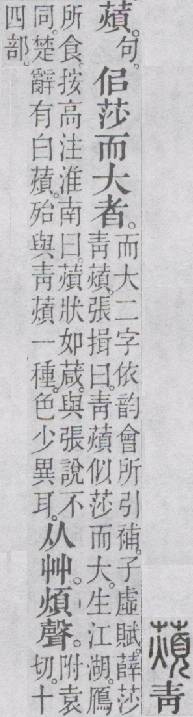 薠青
薠。句。佀莎而大者。而大二字依韵會所引補。子虛賦薛莎
青薠。張揖曰。青薠似莎而大。生江湖。鴈
所食。按高注淮南曰。薠狀如葴。與張說不
同。楚辭有白薠。殆與青薠一種。色少異耳。从艸。煩聲。附袁切。十
四部。